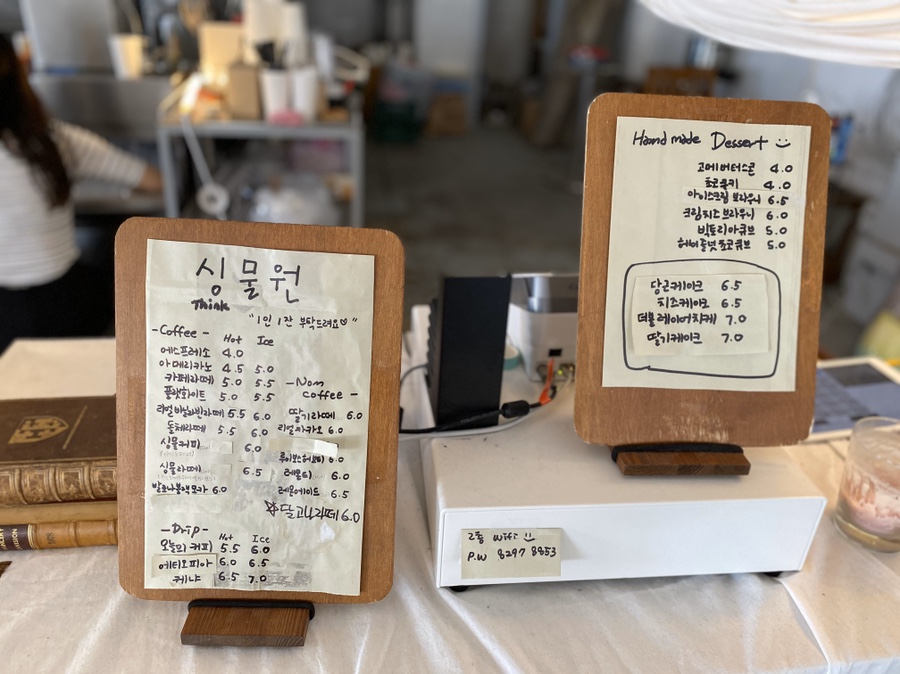 싱물원
Think
"1인 1잔 부탁드려요♡"
-Coffee- Hot Ice
에스프레소 4.0
아메리카노 4.5 5.0
카페라떼 5.0 5.5
플랫화이트 5.0 5.5
리얼바닐라빈라떼 5.5 6.0
돌체라떼 5.5 6.0
싱물커피 6.0
싱물라떼 6.5
발로나블랙모카 6.0
-Non Coffee-
딸기라떼 6.0
리얼카카오 6.0
루이보스허브티 6.0
레몬티 6.0
레몬에이드 6.5
☆달고나라떼 6.0
-Drip- Hot Ice
오늘의 커피 5.5 6.0
에티오피아 6.0 6.5
케냐 6.5 7.0
Hand made Dessert
고메버터스콘 4.0
초코쿠키 4.0
아이스크림 브라우니 6.5
크림치즈 브라우니 6.0
빅토리아큐브 5.0
헤비줄넛초코큐브 5.0
당근케이크 6.5
치즈케이크 6.5
더블레이어치케 7.0
딸기케이크 7.0
2층 wifi
P.W 8297 8853